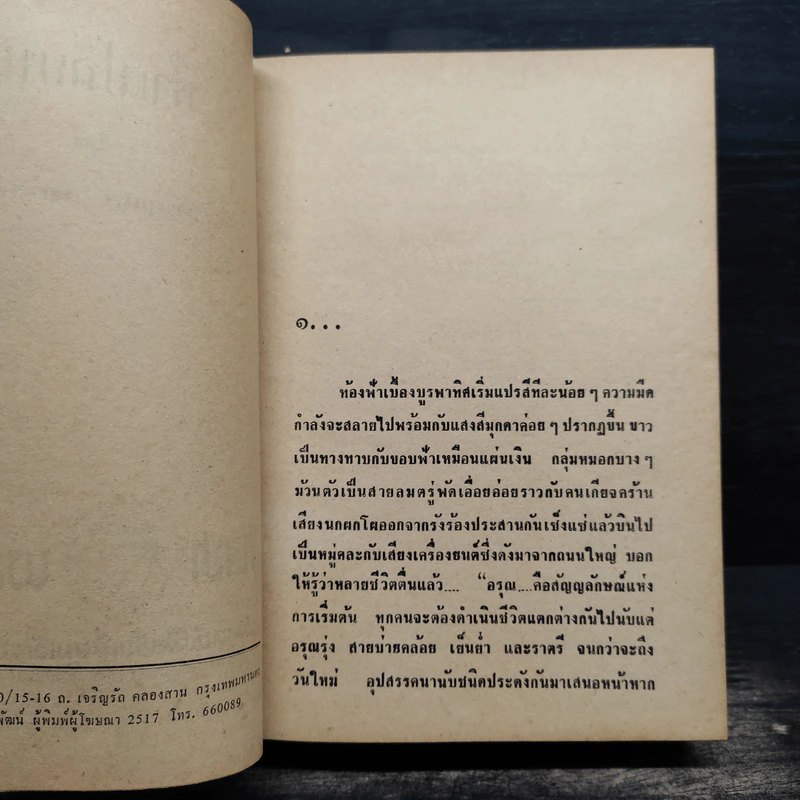 0/15-16 ถ. เจริญรัถ คลองสาน กรุงเทพมหานคร
พัฒน์ ผู้พิมพ์ผู้โฆษณา 2517 โทร. 660089
๑...
ท้องฟ้าเบื้องบูรพาทิศเริ่มแปรสีทีละน้อย ๆ ความมืด
กำลังจะสลายไปพร้อมกับแสงสีมุกดาค่อย ๆ ปรากฏขึ้น ขาว
เป็นทางทาบกับขอบฟ้าเหมือนแผ่นเงิน กลุ่มหมอกบาง ๆ
ม้วนตัวเป็นสายลมตรู่พัดเอื่อยอ่อยราวกับคนเกียจคร้าน
เสียงนกผกโผออกจากรังร้องประสานกันเซ็งแซ่แล้วบินไป
เป็นหมู่คละกับเสียงเครื่องยนต์ซึ่งดังมาจากถนนใหญ่ บอก
ให้รู้ว่าหลายชีวิตตื่นแล้ว.... “อรุณ....คือสัญญลักษณ์แห่ง
การเริ่มต้น ทุกคนจะต้องดำเนินชีวิตแตกต่างกันไปนับแต่
อรุณรุ่ง สายบ่ายคล้อย เย็นย่ำ และราตรี จนกว่าจะถึง
วันใหม่ อุปสรรคนานับชนิดประดังกันมาเสนอหน้าหาก